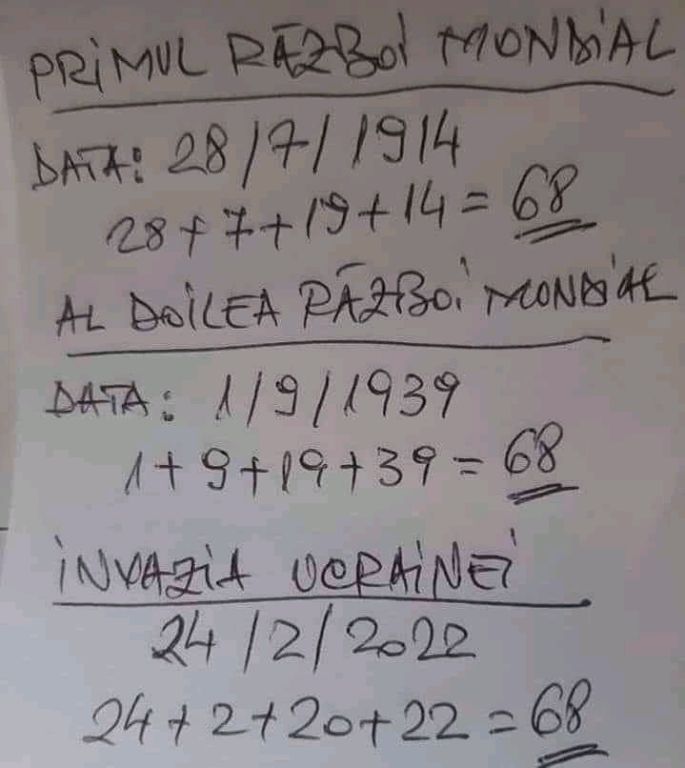 PRIMUL RĂZBOI MONDIAL
DATA: 28/7/1914
28+7+19+14=68
AL DOILEA RĂZBOI MONDIAL
DATA: 1/9/1939
1+9+19+39=68
INVAZIA UCRAINEI
24/2/2022
24+2+20+22=68